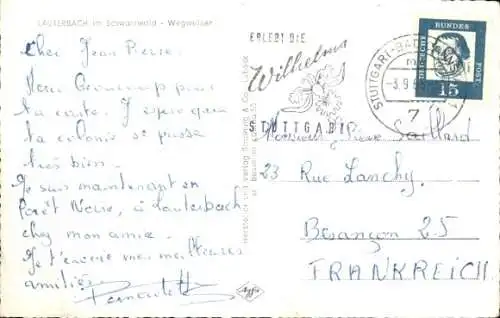 LAUTERBACH im Schwarzwald - Wegweiser
Cher Jean Pierre.
Merci beaucoup pour
ta carte. J'espère que
ta colonie se passe
très bien.
Je suis maintenant en
Forêt Noire, à Lauterbach
chez mon amie.
Je t'envoie mes meilleures
amitiés
ERLEBT DIE
Wilhelma
STUTTGART
STUTTGART-BAD
7
DEUTSCHE BUNDESPOST
15
Monsieur Pierre Gaillard
23 Rue
Besançon 25
FRANKREICH
Agfa